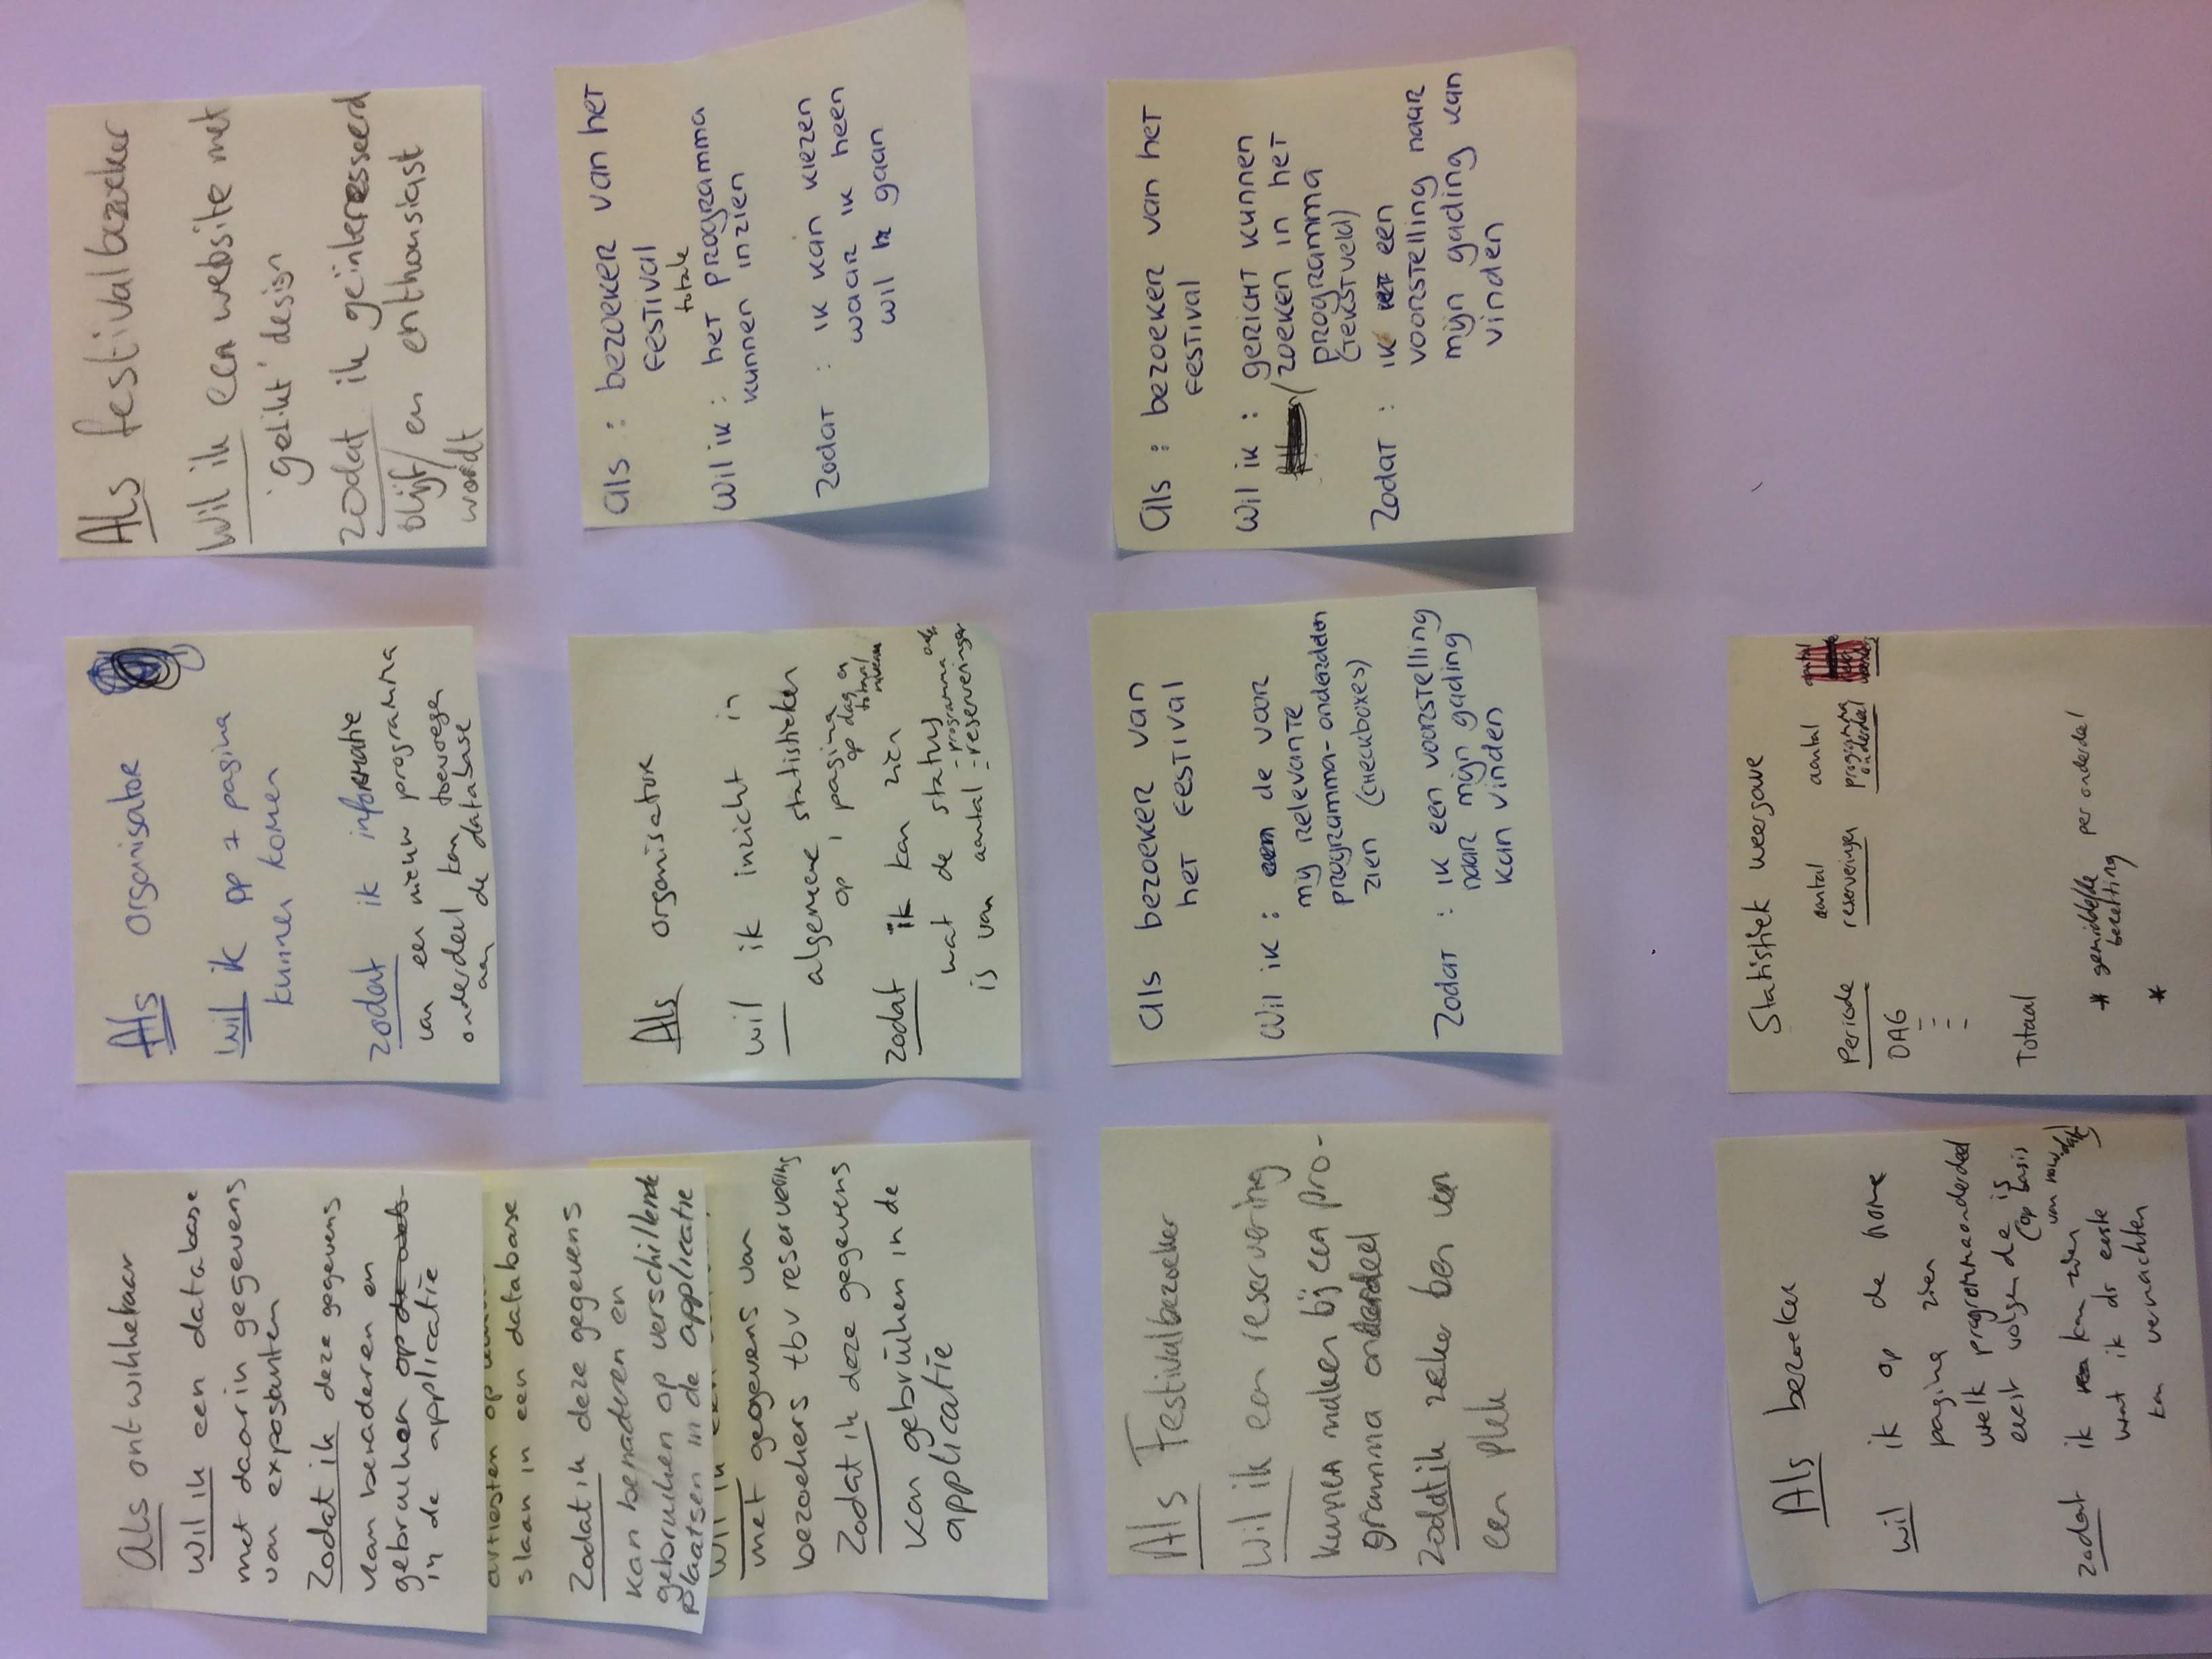 Als ontwikkelaar
Wil ik een database
met daarin gegevens
van exposanten
Zodat ik deze gegevens
kan benaderen en
gebruiken op de web
in de applicatie
artiesten op
slaan in een database
Zodat ik deze gegevens
kan benaderen en
gebruiken op verschillende
plaatsen in de applicatie
Wil ik een
met gegevens van
bezoekers tbv reservering
Zodat ik deze gegevens
kan gebruiken in de
applicatie
Als organisator
Wil ik op 1 pagina
kunnen komen
zodat ik informatie
van een nieuw programma
onderdeel kan toevoegen
aan de database
Als festivalbezoeker
Wil ik een website met
'gelikt' design
zodat ik geïnteresseerd
blijf/en enthousiast
wordt
Als organisator
wil ik inzicht in
algemene statistieken
op 1 pagina
op dag en
totaal
niveau
zodat ik kan zien
wat de status
is van aantal - programma
- reserveringen
-
als : bezoeker van het
festival
totale
Wil ik : het programma
kunnen inzien
Zodat : ik kan kiezen
waar ik heen
wil gaan
Als Festivalbezoeker
Wil ik een reservering
kunnen maken bij een pro-
gramma onderdeel
Zodat ik zeker ben van
een plek
als bezoeker van
het festival
Wil ik : een de voor
mij relevante
programma-onderdelen
zien (checkboxes)
Zodat : ik een voorstelling
naar mijn gading
kan vinden
als : bezoeker van het
festival
Wil ik : gericht kunnen
/zoeken in het
programma
(tekstveld)
Zodat : ik een
voorstelling naar
mijn gading kan
vinden
Als bezoeker
wil ik op de home
pagina zien
welk programmaonderdeel
eerst volgende is
(op basis
van now.date)
zodat ik kan zien
wat ik als eerste
kan verwachten
Statistiek weergave
Periode
aantal
reserveringen
aantal
programma
onderdeel
DAG
-
-
-
-
Totaal
* gemiddelde per onderdeel
bezetting
*